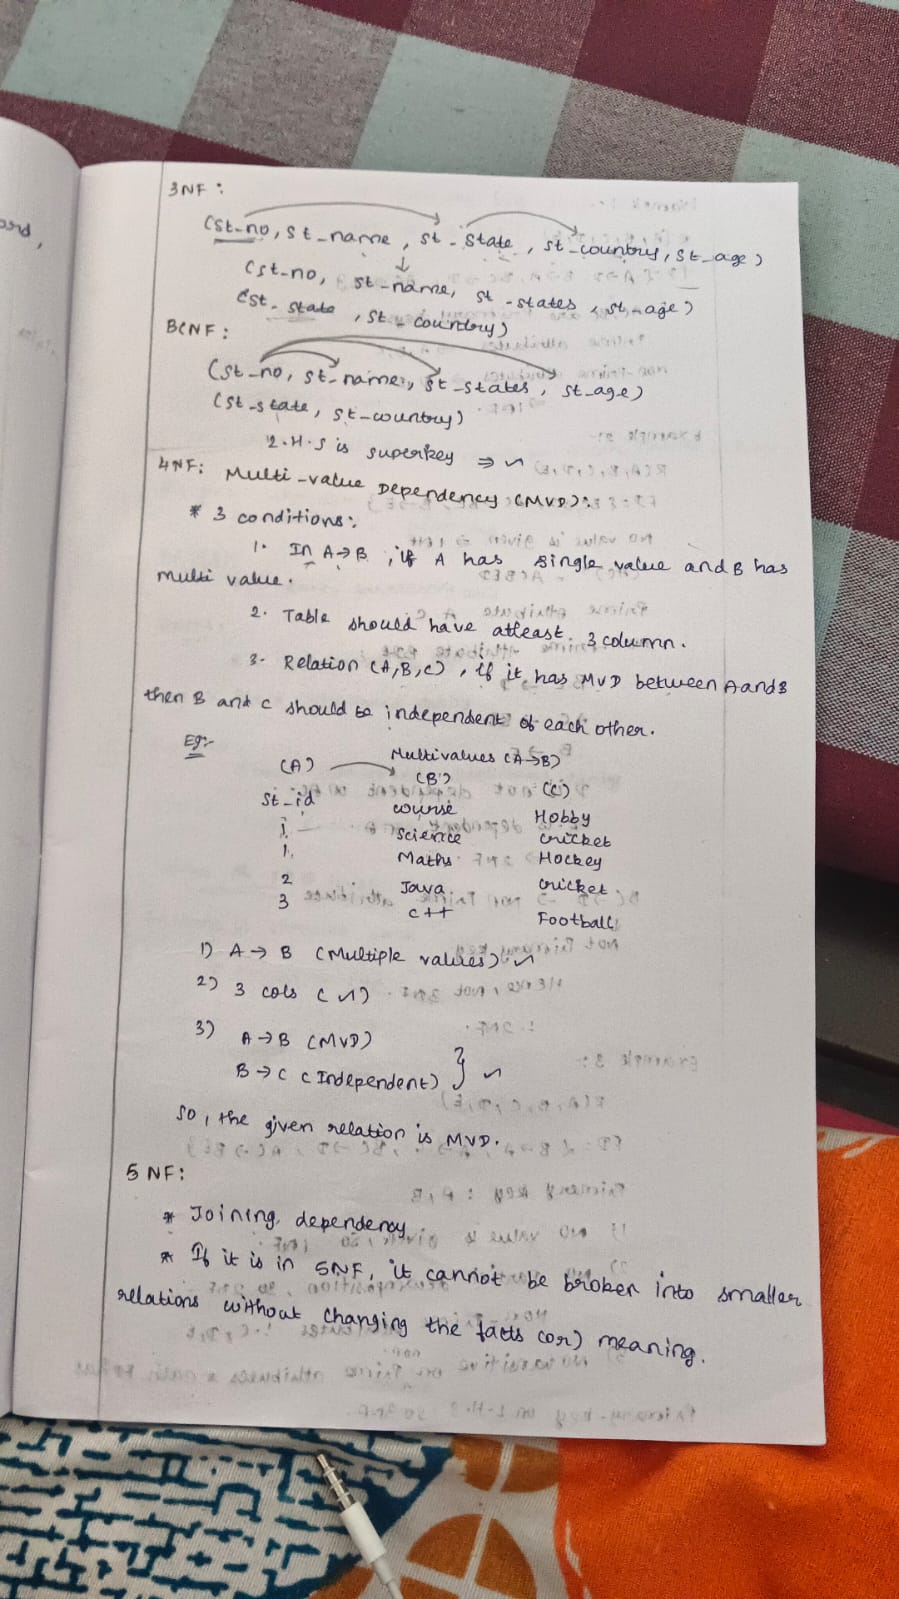 3NF :
(st-no, st_name, st_state, st_country, st_age)
(st-no, st-name, st-states, st-age)
(st-state, st-country)
BCNF :
(st-no, st-name, st-states, st-age)
(st-state, st-country)
L.H.S is superkey ⇒ ✓
4NF: Multi-value Dependency (MVD):
* 3 conditions:
1. In A→B, if A has single value and B has
multi value.
2. Table should have atleast 3 column.
3. Relation (A,B,C), if it has MVD between A and B
then B and C should be independent of each other.
Eg:- Multivalues (A→B)
(A) (B) (C)
St_id course Hobby
1 Science cricket
1. Maths Hockey
2 Java cricket
3 C++ Football
1) A → B (Multiple values) ✓
2) 3 cols (✓)
3) A → B (MVD)
B → C (Independent) } ✓
So, the given relation is MVD.
5 NF:
* Joining dependency
* If it is in 5NF, it cannot be broken into smaller
relations without changing the facts (or) meaning.